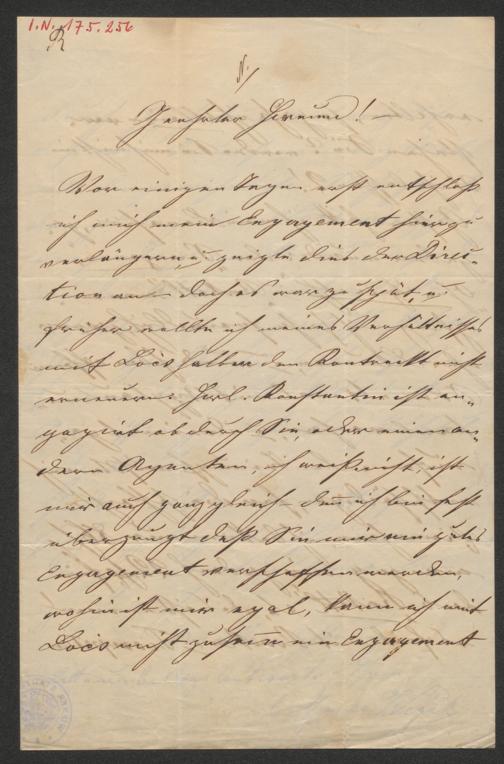 I.N. 175.256
R
N.
Geehrter Freund! –
Vor einigen Tagen erst entschloß
ich mich mein Engagement hier zu
verlängern, u. zeigte dies der Direc-
tion an – doch es war zu spät, u.
früher wollte ich meines Verhältnisses
mit Locs halber den Kontrackt nicht
erneuern. Frl. Konstantin ist en-
gagirt ob durch Sie, oder einen an-
dern Agenten, ich weiß nicht, ist
mir auch ganz gleich – den ich bin fest
überzeugt daß Sie mir ein gutes
Engagement verschaffen werden,
wohin ist mir egal, kann ich mit
Locs nicht zusamm ein Engagement